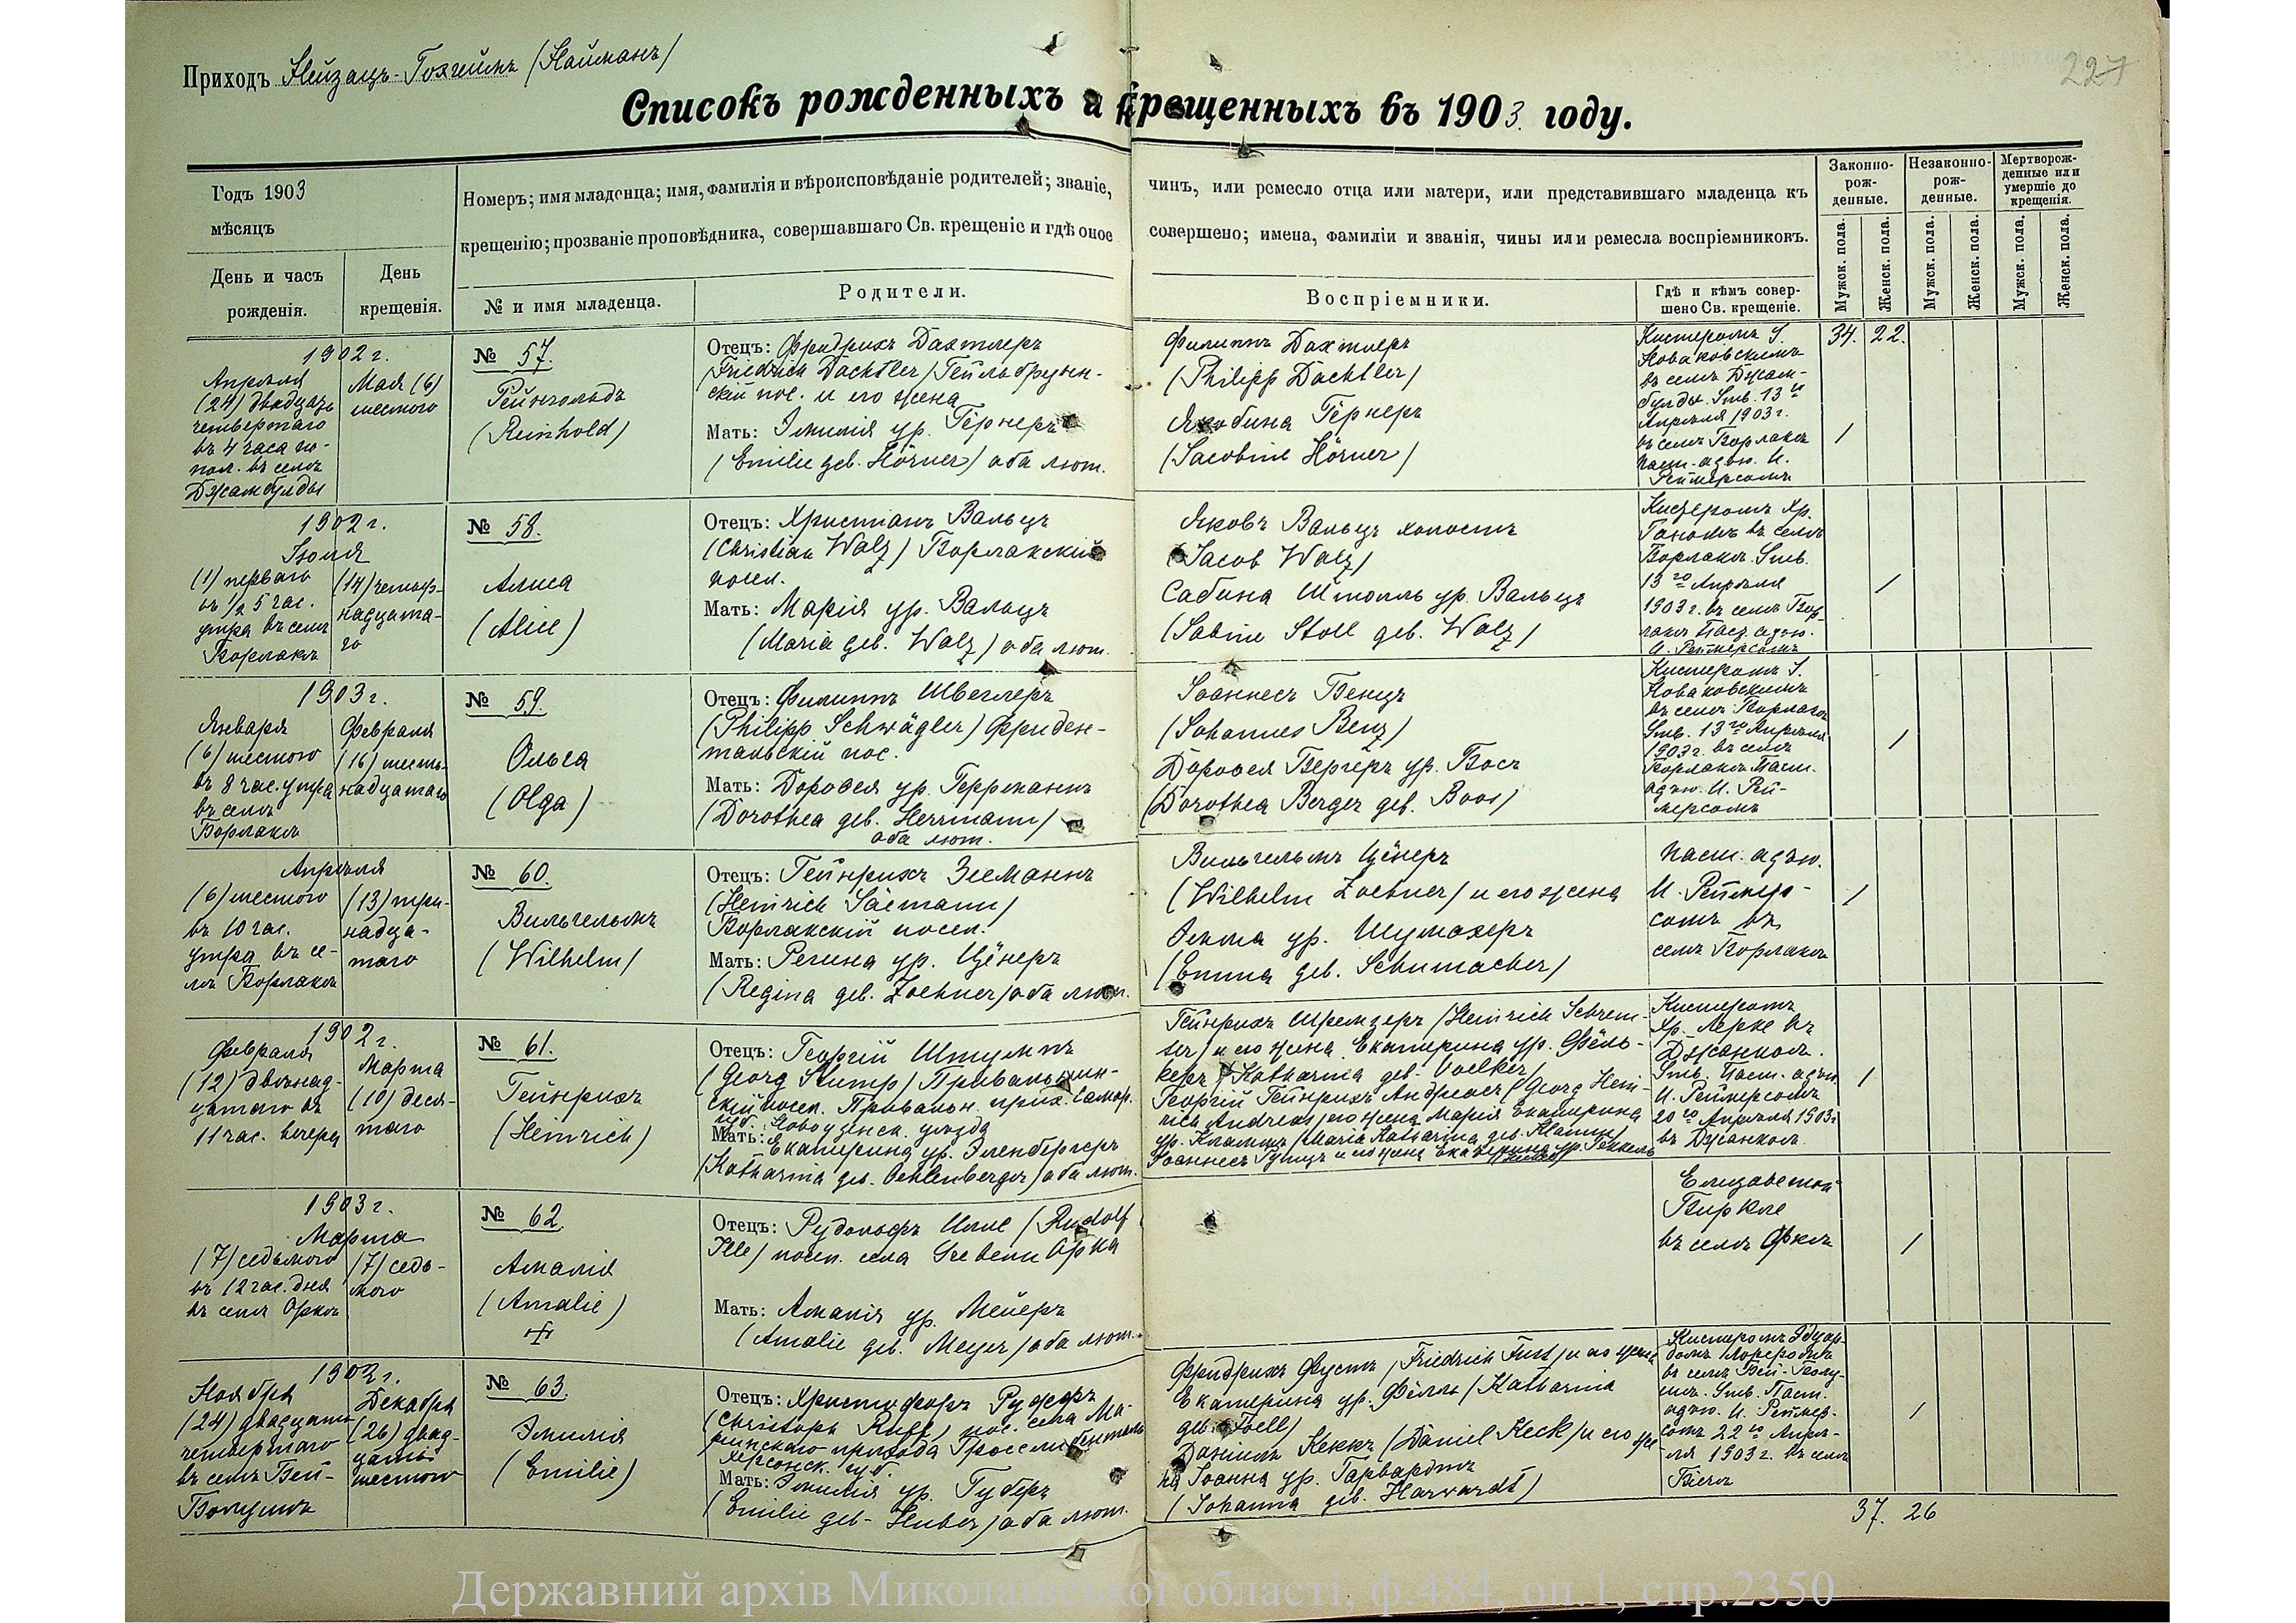 Приходъ Нейзацъ-Гохгеймъ (Найманъ)
227
Списокъ рожденныхъ и крещенныхъ въ 1903 году.
Годъ 1903
мѣсяцъ
День и часъ
рожденія.
День
крещенія.
Номеръ; имя младенца; имя, фамилія и вѣроисповѣданіе родителей; званіе,
крещенію; прозваніе проповѣдника, совершавшаго Св. крещеніе и гдѣ оное
№ и имя младенца.
Родители.
чинъ, или ремесло отца или матери, или представившаго младенца къ
совершено; имена, фамиліи и званія, чины или ремесла воспріемниковъ.
Воспріемники.
Гдѣ и кѣмъ совер-
шено Св. крещеніе.
Законно-
рож-
денные.
Незаконно-
рож-
денные.
Мертворож-
денные или
умершіе до
крещенія.
Мужск. пола.
Женск. пола.
Мужск. пола.
Женск. пола.
Мужск. пола.
Женск. пола.
1902 г.
Апрѣля
(24) двадцать
четвертаго
въ 4 часа по-
пол. въ селѣ
Джамбулды
Мая (6)
шестого
№ 57.
Рейнгольдъ
(Reinhold)
Отецъ: Фридрихъ Дахтлеръ
(Friedrich Dachtler) Гейльбрун-
скій пос. и его жена
Мать: Эмилія ур. Гёрнеръ
(Emilie geb. Hörner) оба лют.
Филиппъ Дахтлеръ
(Philipp Dachtler)
Якобина Гёрнеръ
(Jacobine Hörner)
Кистеромъ J.
Новаковскимъ
въ селѣ Джам-
булды. Утв. 13го
Апрѣля 1903 г.
въ селѣ Борлакъ
паст. адъю. И.
Реймерсомъ
34. 22.
/
1902 г.
Іюля
(1) перваго
въ 1/2 5 час.
утра въ селѣ
Борлакъ
(14) четыр-
надцата-
го
№ 58.
Алиса
(Alice)
Отецъ: Христіанъ Вальцъ
(Christian Walz) Борлакскій
посел.
Мать: Марія ур. Вальцъ
(Maria geb. Walz) оба лют.
Яковъ Вальцъ холостъ
(Jacob Walz)
Сабина Штолль ур. Вальцъ
(Sabine Stoll geb. Walz)
Кистеромъ Хр.
въ селѣ
Борлакъ. Утв.
13го Апрѣля
1903 г. въ селѣ Бор-
лакъ Паст. адъю.
И. Реймерсомъ
/
1903 г.
Января
(6) шестого
въ 8 час. утра
въ селѣ
Борлакъ
Февраля
(16) шест-
надцатаго
№ 59.
Ольга
(Olga)
Отецъ: Филиппъ Швеглеръ
(Philipp Schwägler) Фриден-
тальскій пос.
Мать: Доровея ур. Геррманнъ
(Dorothea geb. Herrmann)
оба лют.
Іоаннесъ Бенцъ
(Johannes Benz)
Доровея Бергеръ ур. Боосъ
(Dorothea Berger geb. Boos)
Кистеромъ J.
Новаковскимъ
въ селѣ Борлакъ
Утв. 13го Апрѣля
1903 г. въ селѣ
Борлакъ Паст.
адъю. И. Рей-
мерсомъ
/
Апрѣля
(6) шестого
въ 10 час.
утра въ се-
лѣ Борлакъ
(13) три-
надца-
таго
№ 60.
Вильгельмъ
(Wilhelm)
Отецъ: Гейнрихъ Зееманнъ
(Heinrich Säemann)
Борлакскій посел.
Мать: Регина ур. Цёнеръ
(Regina geb. Zoehner) оба лют.
Вильгельмъ Цёнеръ
(Wilhelm Zoehner) и его жена
Эмма ур. Шумахеръ
(Emma geb. Schumacher)
паст. адъю.
И. Реймер-
сомъ въ
селѣ Борлакъ
/
1902 г.
Февраля
(12) двѣнад-
цатаго въ
11 час. вечера
Марта
(10) деся-
таго
№ 61.
Гейнрихъ
(Heinrich)
Отецъ: Георгій Штумпъ
(Georg Stump) Привальнин-
скій посел. Привальн. прих. Самар.
губ. Новоузенск. уѣзда
Мать: Екатерина ур. Эленбергеръ
(Katharina geb. Oehlenberger) оба лют.
Гейнрихъ Шремзеръ (Heinrich Schrem-
ser) и его жена Екатерина ур. Фёль-
керъ (Katharina geb. Voelker)
Георгій Гейнрихъ Андреасъ (Georg Hein-
rich Andreas) его жена Марія Екатерина
ур. Кламмъ (Maria Katharina geb. Klamm)
Іоаннесъ и его жена Екатерина ур. Геккель
Кистеромъ
Хр. Лерке въ
Джанкоѣ.
Утв. Паст. адъю.
И. Реймерсомъ
20го Апрѣля 1903 г.
въ Джанкоѣ.
/
1903 г.
Марта
(7) седьмого
въ 12 час. дня
въ селѣ Орка
(7) седь-
мого
№ 62.
Амалія
(Amalie)
+
Отецъ: Рудольфъ Илле (Rudolf
Ille) посел. села Орка
Мать: Амалія ур. Мейеръ
(Amalie geb. Meyer) оба лют.
Елизаветой
Биркле
въ селѣ
/
1902 г.
Ноября
(24) двадцать
четвертаго
въ селѣ Бей-
Болушъ
Декабря
(26) двад-
цать
шестого
№ 63.
Эмилія
(Emilie)
Отецъ: Христофоръ Руффъ
(Christoph Ruff) пос. села Ма-
ріинскаго прихода Гросслибенталь
Херсонск. губ.
Мать: Эмилія ур. Губеръ
(Emilie geb. Huber) оба лют.
Фридрихъ Фустъ (Friedrich Fust) и его жена
Екатерина ур. Фёлль (Katharina
geb. Foell)
Даніилъ Кеккъ (Daniel Keck) и его же-
на Іоанна ур. Гарвардтъ
(Johanna geb. Harwardt)
Кистеромъ Эдуар-
домъ
въ селѣ Бей-Болу-
шъ. Утв. Паст.
адъю. И. Реймер-
сомъ 22го Апрѣ-
ля 1903 г. въ селѣ
/
37. 26
Державний архів Миколаївської області, ф.484, оп.1, спр.2350